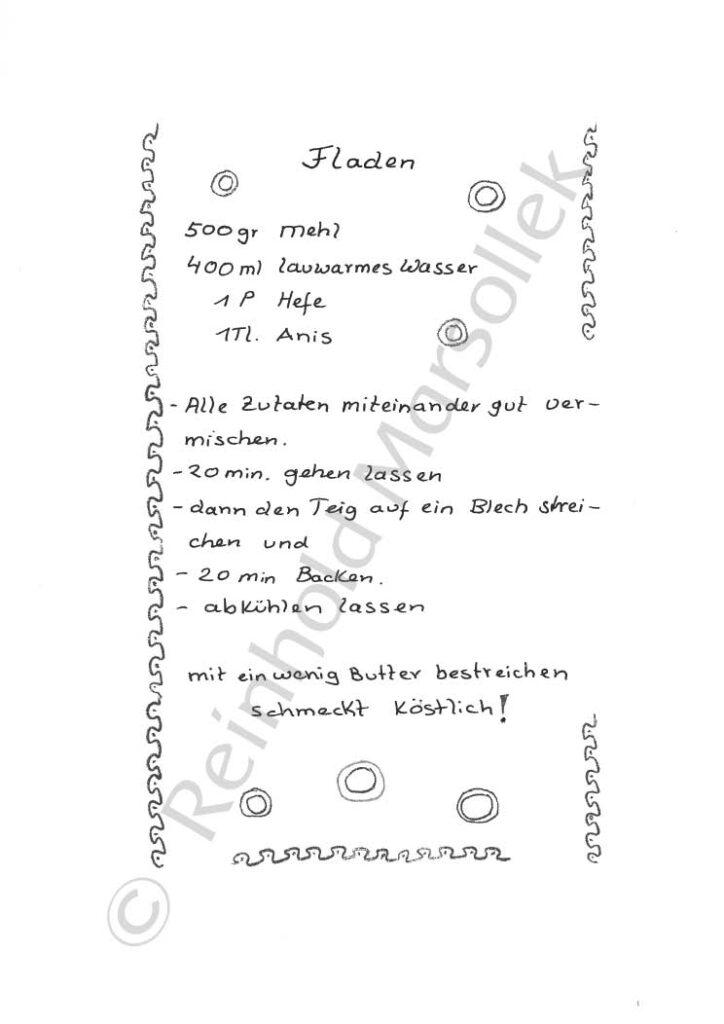 Fladen
500gr Mehl
400ml lauwarmes Wasser
1 P Hefe
1Tl. Anis
- Alle Zutaten miteinander gut ver-
mischen.
- 20 min. gehen lassen
- dann den Teig auf ein Blech strei-
chen und
- 20 min Backen.
- abkühlen lassen
mit ein wenig Butter bestreichen
schmeckt köstlich!
© Reinhold Marsollek